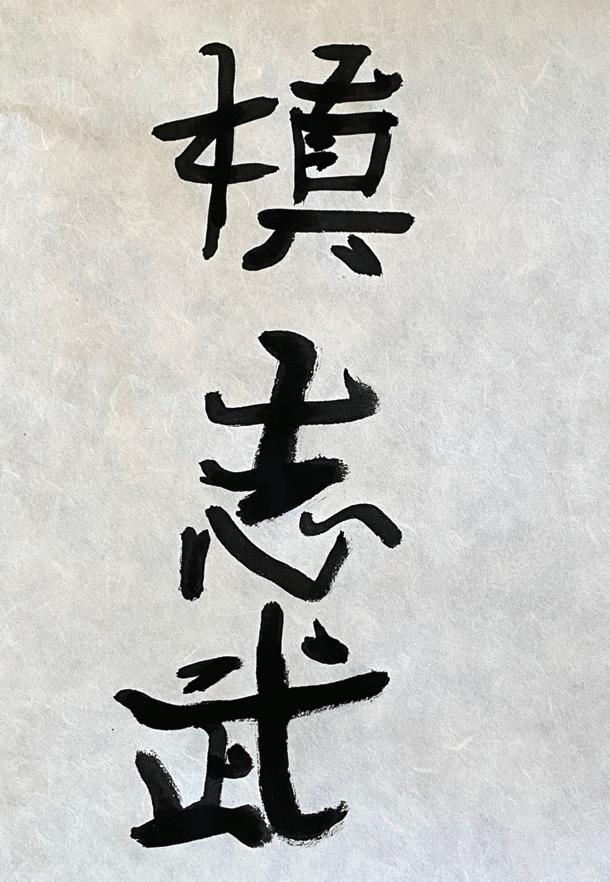 槙志武